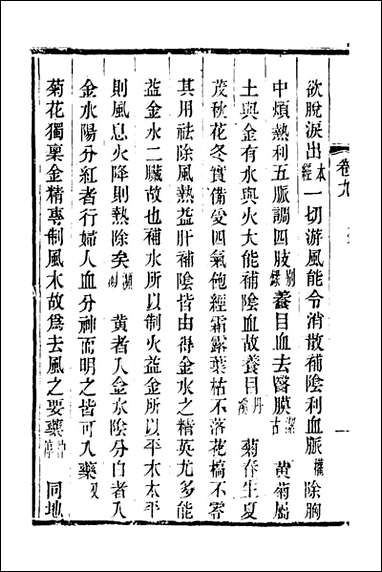 欲脫淚出本經一切游風能令消散補陰利血脈權除胸
中煩熱利五脈調四肢別錄養目血去翳膜潔古黃菊屬
土與金有水與火大能補陰血故養目丹溪菊春生夏
茂秋花冬實備受四氣飽經霜露葉枯不落花槁不零
其用祛除風熱益肝補陰皆由得金水之精英尤多能
益金水二臟故也補水所以制火益金所以平木木平
則風息火降則熱除矣瀕湖黃者入金水陰分白者入
金水陽分紅者行婦人血分神而明之皆可入藥
菊花獨稟金精專制風木故爲去風之要藥 同地
卷九
一